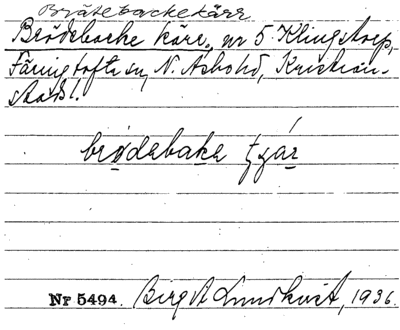 Bråtebackekärr
Brödebacke kärr, nr 5 Klingstorp,
Färingtofta sn, N. Åsbohd, Kristian-
stads l.
brødebaka tɕár
Nr 5494. Birgit Lundkvist, 1936.